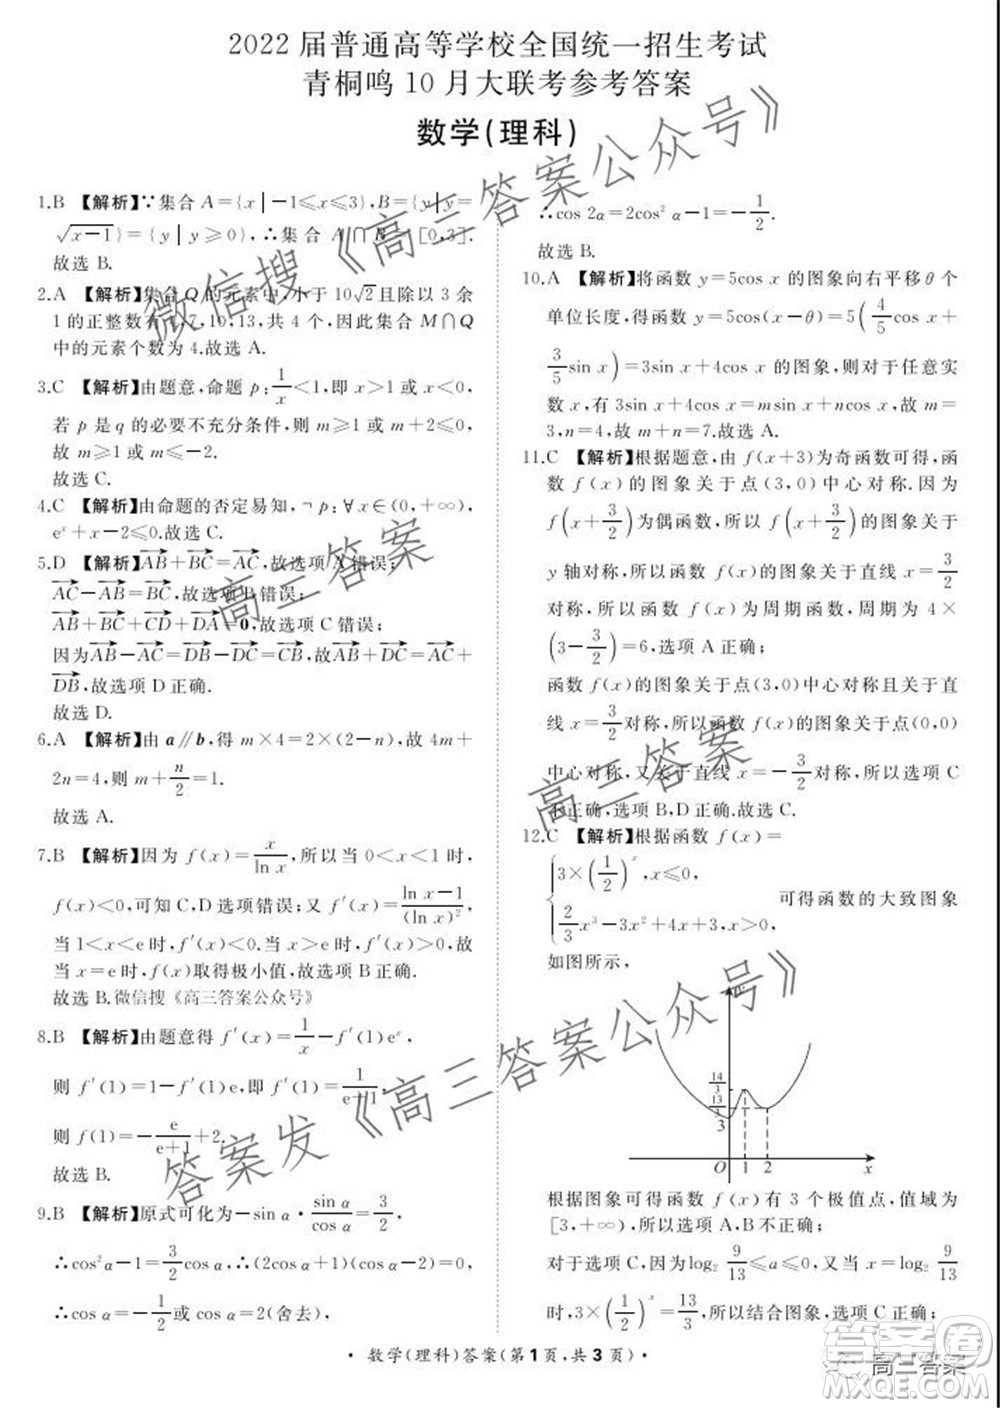 2022 届普通高等学校全国统一招生考试
青桐鸣 10 月大联考参考答案
数学(理科)
1.B 【解析】∵集合 A={x|-1≤x≤3},B={y|y=
√(x-1)}={y|y≥0},∴集合 A∩B=[0,3].
故选 B.
2.A 【解析】集合 Q 的元素中,小于 10√2 且除以 3 余
1 的正整数有 4,7,10,13,共 4 个,因此集合 M∩Q
中的元素个数为 4.故选 A.
3.C 【解析】由题意,命题 p:1/x<1,即 x>1 或 x<0,
若 p 是 q 的必要不充分条件,则
故 m≥1 或 m≤-2.
故选 C.
4.C 【解析】由命题的否定易知,¬p:∀x∈(0,+∞),
eˣ+x-2≤0.故选 C.
5.D 【解析】AB+BC=AC,故选项 A 错误;
AC-AB=BC,故选项 B 错误;
AB+BC+CD+DA=0,故选项 C 错误;
因为AB-AC=DB-DC=CB,故AB+DC=AC+
DB,故选项 D 正确.
故选 D.
6.A 【解析】由 a∥b,得 m×4=2×(2-n),故 4m+
2n=4,则 m+n/2=1.
故选 A.
7.B 【解析】因为 f(x)=x/ln x,所以当 0<x<1 时,
f(x)<0,可知 C,D 选项错误;又 f′(x)=(ln x-1)/(ln x)²,
当 1<x<e 时,f′(x)<0.当 x>e 时,f′(x)>0,故
当 x=e 时,f(x)取得极小值,故选项 B 正确.
故选 B.微信搜《高三答案公众号》
8.B 【解析】由题意得 f′(x)=1/x-f′(1)eˣ,
则 f′(1)=1-f′(1)e,即 f′(1)=1/(e+1),
则 f(1)=-e/(e+1)+2.
故选 B.
9.B 【解析】原式可化为-sin α·sin α/cos α=3/2,
∴cos²α-1=3/2cos α,∴(2cos α+1)(cos α-2)=0,
∴cos α=-1/2或 cos α=2(舍去),
∴cos 2α=2cos²α-1=-1/2.
故选 B.
10.A 【解析】将函数 y=5cos x 的图象向右平移 θ 个
单位长度,得函数 y=5cos(x-θ)=5(4/5cos x+
3/5sin x)=3sin x+4cos x 的图象,则对于任意实
数 x,有 3sin x+4cos x=msin x+ncos x,故 m=
3,n=4,故 m+n=7.故选 A.
11.C 【解析】根据题意,由 f(x+3)为奇函数可得,函
数 f(x)的图象关于点(3,0)中心对称.因为
f(x+3/2)为偶函数,所以 f(x+3/2)的图象关于
y 轴对称,所以函数 f(x)的图象关于直线 x=3/2
对称,所以函数 f(x)为周期函数,周期为 4×
(3-3/2)=6,选项 A 正确;
函数 f(x)的图象关于点(3,0)中心对称且关于直
线 x=3/2对称,所以函数 f(x)的图象关于点(0,0)
中心对称,又关于直线 x=-3/2对称,所以选项 C
不正确,选项 B,D 正确.故选 C.
12.C 【解析】根据函数 f(x)=
{3×(1/2)ˣ,x≤0,
2/3x³-3x²+4x+3,x>0 可得函数的大致图象
如图所示,
14/3
13/3
3
O 1 2 x
根据图象可得函数 f(x)有 3 个极值点,值域为
[3,+∞),所以选项 A,B 不正确;
对于选项 C,可知log₂ 9/13≤a≤0,又当 x=log₂ 9/13
时,3×(1/2)ˣ=13/3,所以结合图象,选项 C 正确;
·数学(理科)答案(第1页,共3页)·
微信搜《高三答案公众号》
高三答案
高三答案
答案发《高三答案公众号》
高三答案
答案圈
MXQE.COM